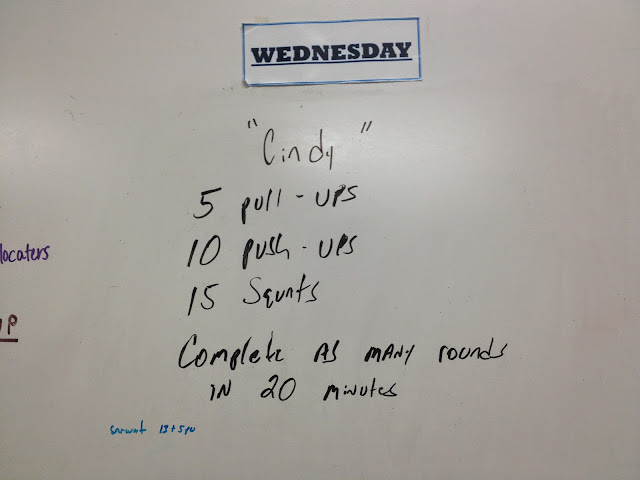 WEDNESDAY
"Cindy"
5 pull-ups
10 push-ups
15 Squats
locaters
Complete AS MANY rounds
IN 20 minutes
13 + 5 pu